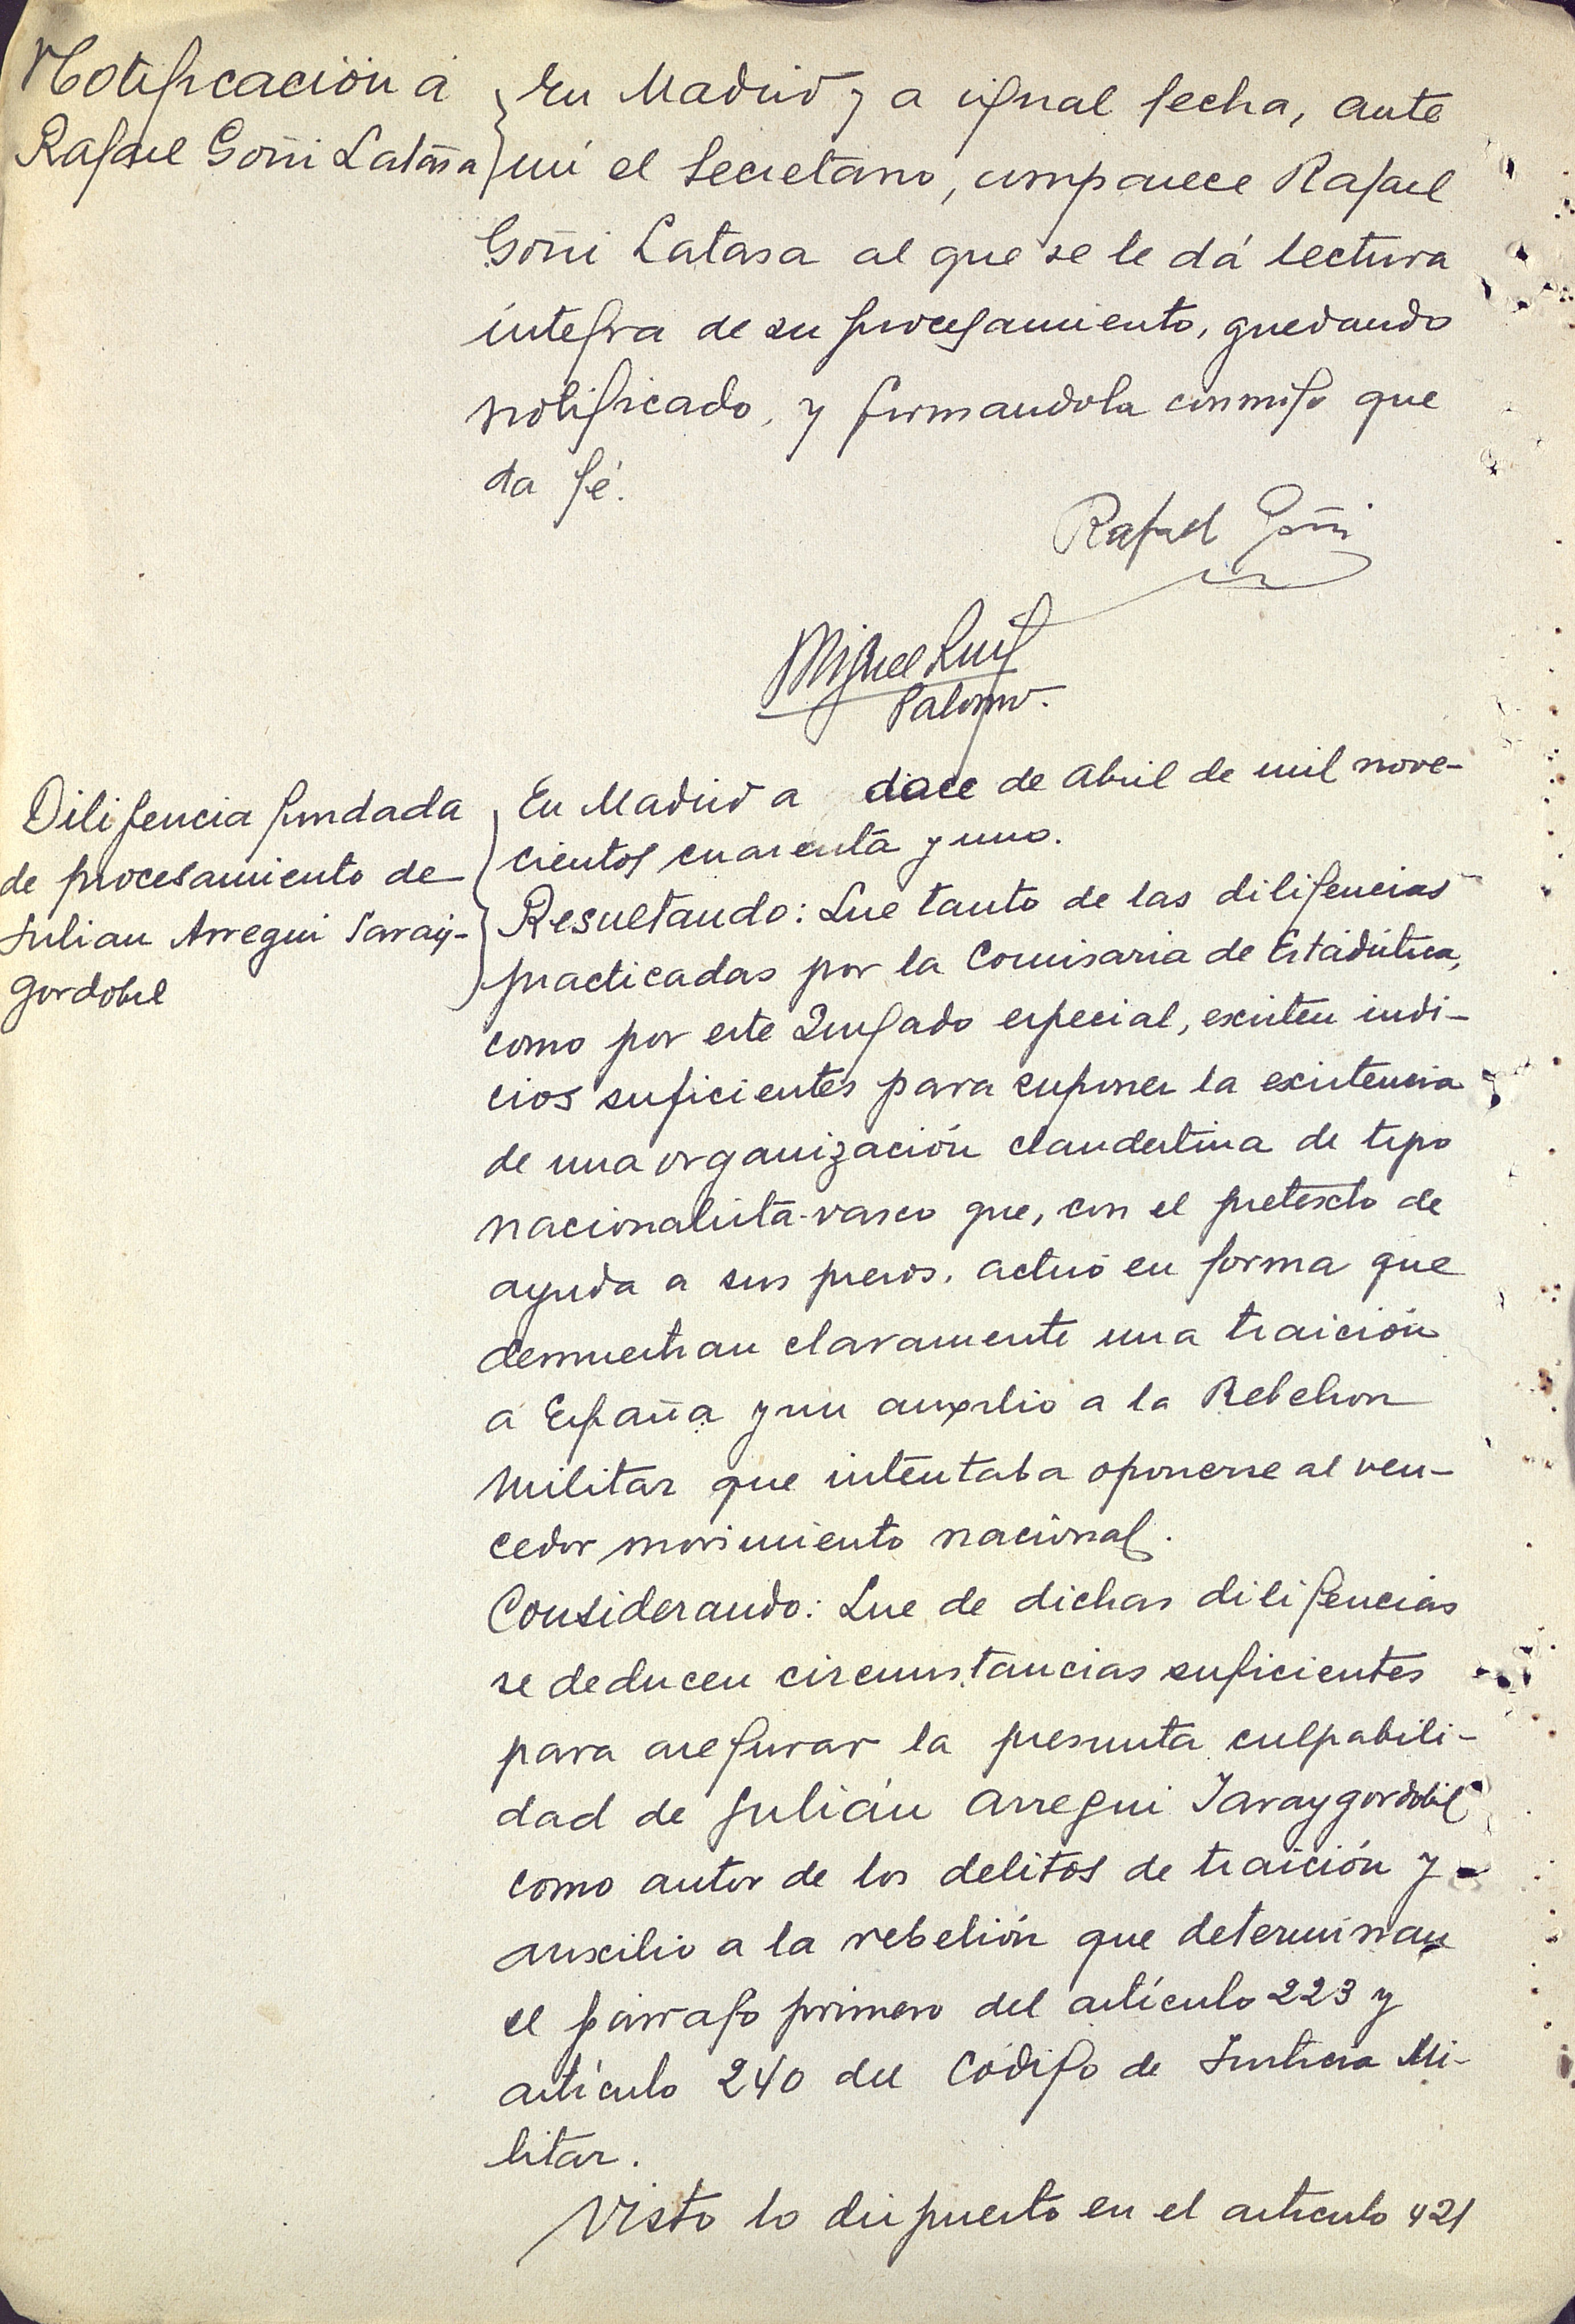 Notificación á
Rafael Goñi Latasa
En Madrid y a igual fecha, ante
mí el Secretario, comparece Rafael
Goñi Latasa al que se le dá lectura
íntegra de su procesamiento, quedando
notificado, y firmandola conmigo que
da fé.
Rafael Goñi
Miguel Ruiz
Palomo.
Diligencia fundada
de procesamiento de
Julian Arregui Taray-
gordobil
En Madrid a doce de abril de mil nove-
cientos cuarenta y uno.
Resultando: Que tanto de las diligencias
practicadas por la Comisaria de Estadística,
como por este Juzgado especial, existen indi-
cios suficientes para suponer la existencia
de una organización clandestina de tipo
nacionalista-vasco que, con el pretexto de
ayuda a sus presos, actuó en forma que
demuestran claramente una traición
á España y un auxilio a la Rebelion
Militar que intentaba oponerse al ven-
cedor movimiento nacional.
Considerando: Que de dichas diligencias
se deducen circunstancias suficientes
para asegurar la presunta culpabili-
dad de Julián Arregui Taraygordobil
como autor de los delitos de traición y
auxilio a la rebelión que determinan
el párrafo primero del artículo 223 y
artículo 240 del Código de Justicia Mi-
litar.
Visto lo dispuesto en el articulo 421